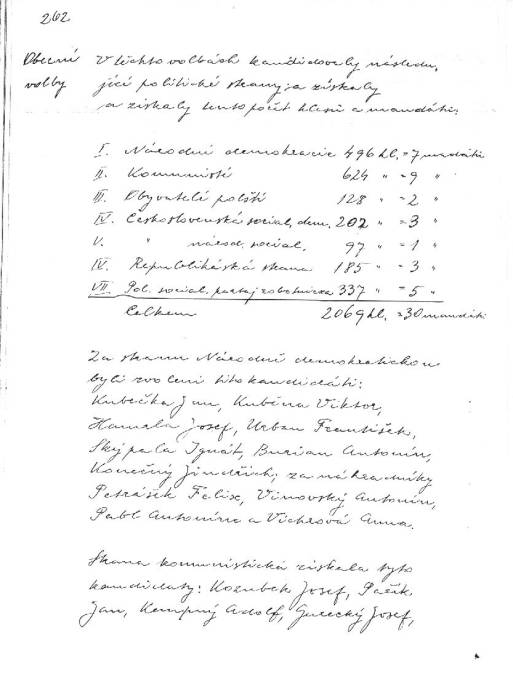 262
Obecní volby
V těchto volbách kandidovaly následu-
jící politické strany a získaly
a získaly tento počet hlasů a mandátů:
I. Národní demokracie 496 hl. = 7 mandátů
II. Komunisti 624 " = 9 "
III. Obyvatelé polští 128 " = 2 "
IV. Československá sociál. dem. 202 " = 3 "
V. " národ. sociál. 97 " = 1 "
IV. Republikánská strana 185 " = 3 "
VII. Pol. sociál. partaj robotnicza 337 " = 5 "
Celkem 2069 hl. = 30 mandátů
Za stranu Národně demokratickou
byli zvoleni tito kandidáti:
Kubečka Jan, Kuběna Viktor,
Hamala Josef, Urban František,
Skýpala Ignát, Burian Antonín,
Konečný Jindřich; za náhradníky
Petrášek Felix, Vinovský Antonín,
Pabl Antonín a Vichrová Anna.
Strana komunistická získala tyto
kandidáty: Kozubek Josef, Pašek
Jan, Kempný Adolf, Josef,